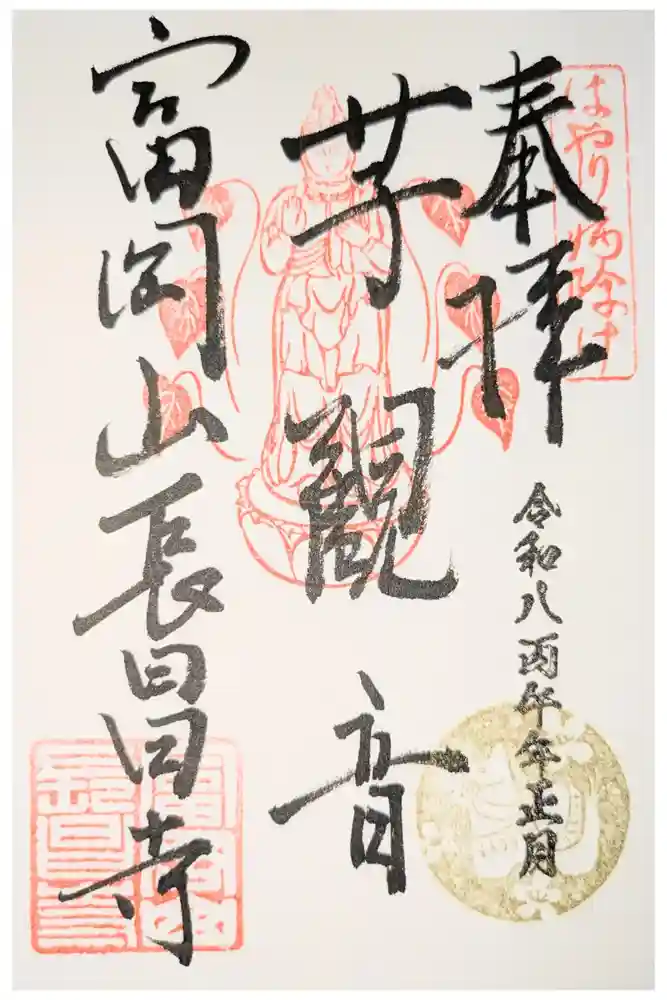 はやり病除け
奉拝
令和八丙午年正月
芋観音
富岡山長昌寺